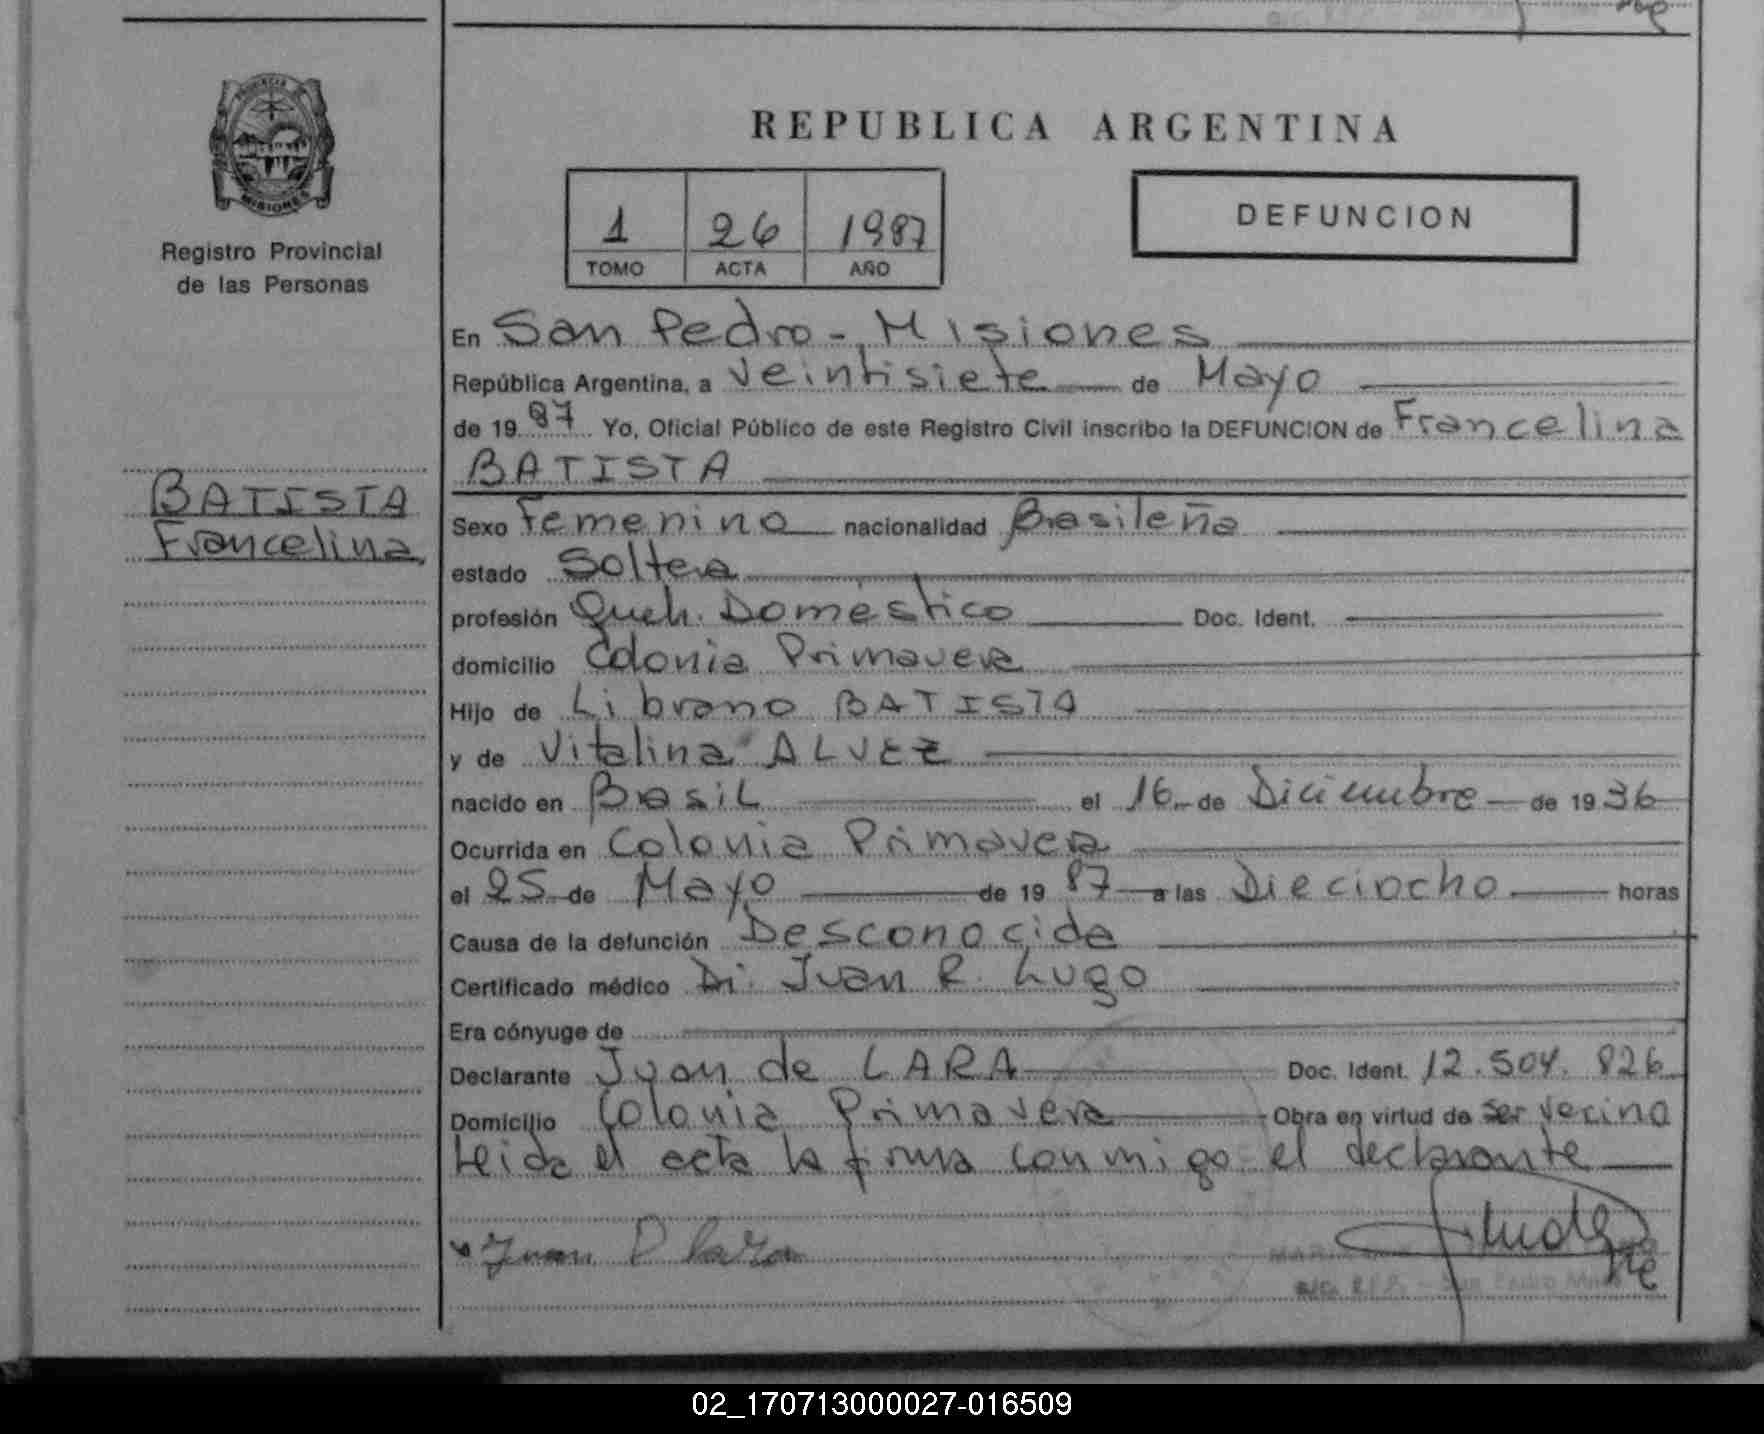 PROVINCIA DE
MISIONES
Registro Provincial
de las Personas
BATISTA
Francelina
REPUBLICA ARGENTINA
1 26 1987
TOMO ACTA AÑO
DEFUNCION
En San Pedro - Misiones
República Argentina, a veintisiete de Mayo
de 19 87 Yo, Oficial Público de este Registro Civil inscribo la DEFUNCION de Francelina
BATISTA
Sexo Femenino nacionalidad Brasileña
estado Soltera
profesión Queh. Doméstico Doc. Ident.
domicilio Colonia Primavera
Hijo de Librano BATISTA
y de Vitalina ALVEZ
nacido en Brasil el 16 de Diciembre de 19 36
Ocurrida en Colonia Primavera
el 25 de Mayo de 19 87 a las Dieciocho horas
Causa de la defunción Desconocida
Certificado médico Dr. Juan R. Lugo
Era cónyuge de
Declarante Juan de LARA Doc. Ident. 12.504.826
Domicilio Colonia Primavera Obra en virtud de ser vecino
Leida el acta la firma conmigo el declarante
Juan D Lara
02_170713000027-016509